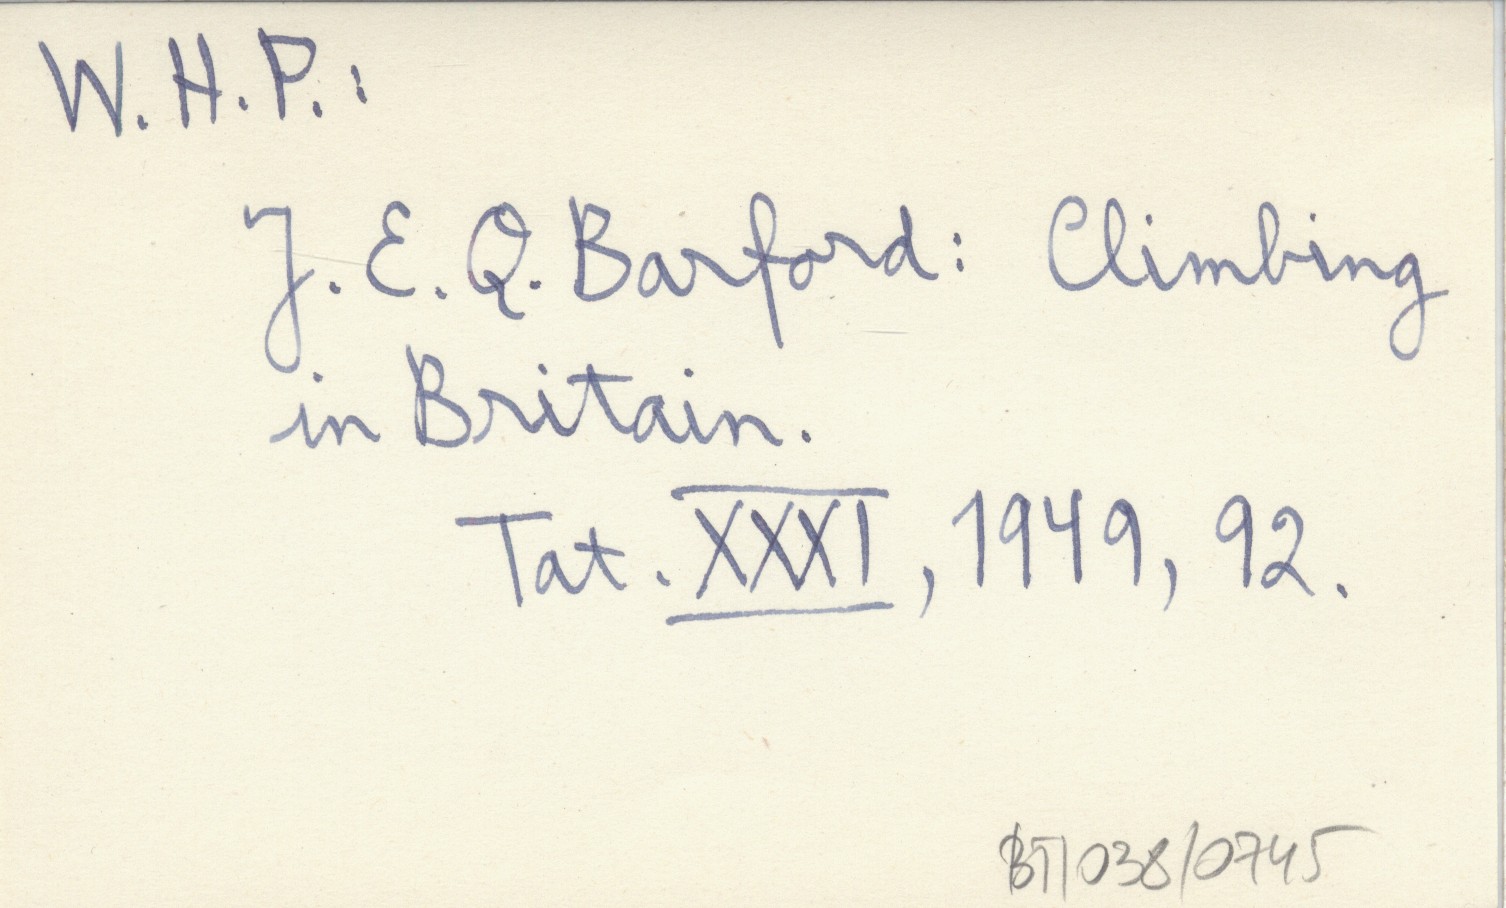 W.H.P.:
J.E.Q. Barford: Climbing
in Britain.
Tat. XXXI, 1949, 92.
BT/038/0745